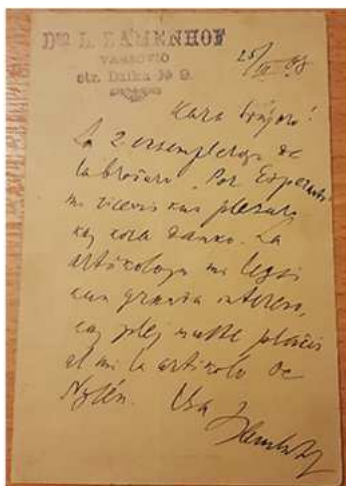 Dro L. ZAMENHOF
VARSOVIO
str. Dzika № 9.
25/III 98
Kara sinjoro!
La 2 ekzemplerojn de
la broŝuro „Por Esperanto"
mi ricevis kun plezuro
kaj kora danko. La
artikolojn mi legis
kun granda intereso,
kaj plej multe plaĉis
al mi la artikolo de
Nylén. Via
Zamenhof